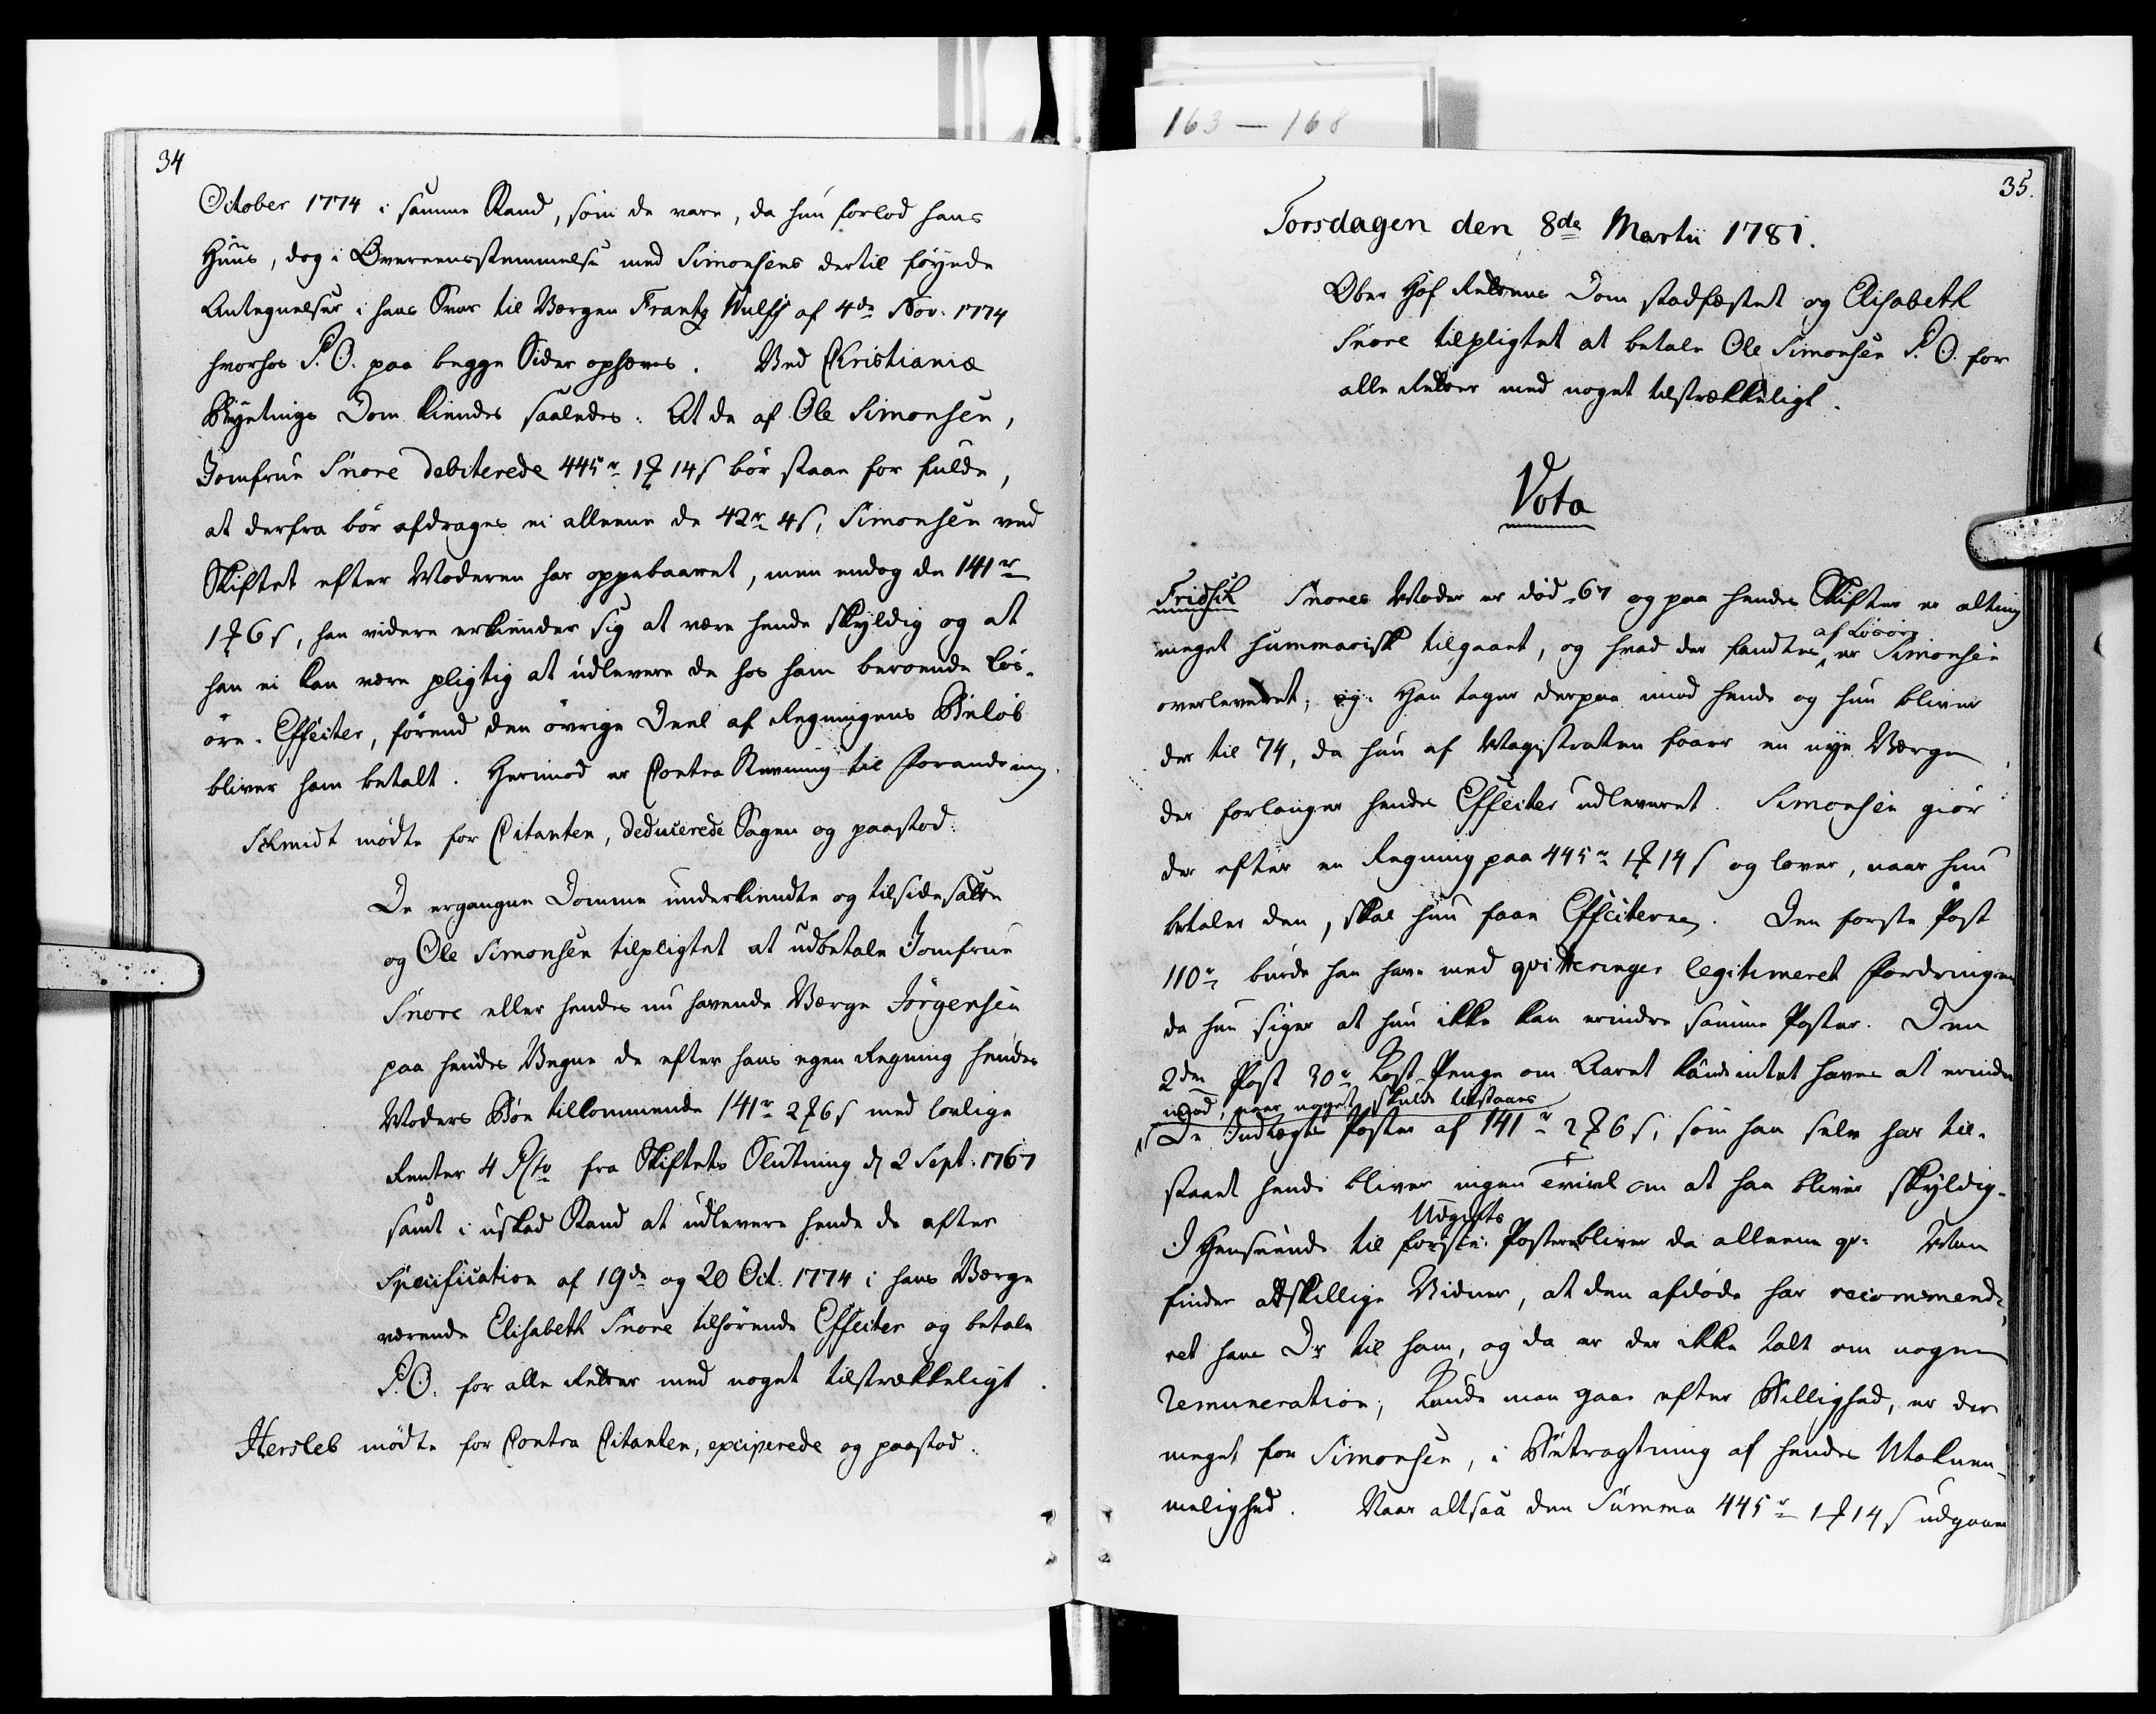 163 — 168
34
October 1774 i samme Stand, som de vare, da hun forlod hans
Huus, dog i Overeensstemmelse med Simonsens dertil føyede
Antegnelser i hans Svar til Værgen Frantz Wulff af 4de Nov. 1774
hvorhos P. O. paa begge Sider ophæves. Ved Christianiæ
Byetings Dom kiendes saaledes: At de af Ole Simonsen,
Jomfrue Snore debiterede 445 r 1 ꝶ 14 s bör staae for fulde,
at derfra bör afdrages ei alleene de 42 r 4 s, Simonsen ved
Skiftet efter Moderen har oppebaaret, men endog de 141 r
1 ꝶ 6 s, han videre erkiender sig at være hende skyldig og at
han ei kan være pligtig at udlevere de hos ham beroende Lös-
öre-Effecter, förend den övrige Deel af Regningens Belöb
bliver ham betalt. Herimod er Contra Stevning til Forandring.
Schmidt mödte for Citanten, deducerede Sagen og paastod:
De ergangne Domme underkiendte og tilsidesatte
og Ole Simonsen tilpligtet at udbetale Jomfrue
Snore eller hendes nu havende Værge Jörgensen
paa hendes Vegne de efter hans egen Regning hendes
Moders Boe tilkommende 141 r 2 ꝶ 6 s med lovlige
Renter 4 P Cto fra Skiftets Slutning d. 2 Sept. 1767
samt i uskad Stand at udlevere hende de efter
Specification af 19de og 20 Oct. 1774 i hans Værge
værende Elisabeth Snore tilhörende Effecter og betale
P. O. for alle Retter med noget tilstrækkeligt.
Hersleb mödte for Contra Citanten, exciperede og paastod:
35.
Torsdagen den 8de Martii 1781.
Ober Hof Rettens Dom stadfæstet og Elisabeth
Snore tilpligtet at betale Ole Simonsen P. O. for
alle Retter med noget tilstrækkeligt.
Vota
Fridsch Snores Moder er död 67 og paa hendes Skifter er alting
meget summarisk tilgaaet, og hvad der fandtes af Lösöre er Simonsen
overleveret; Han tager derpaa imod hende og hun bliver
der til 74, da hun af Magistraten faaer en nye Værge
der forlanger hendes Effecter udleveret. Simonsen giör
der efter en Regning paa 445 r 1 ꝶ 14 s og lover, naar hun
betaler den, skal hun faae Effecterne. Den förste Post
110 r burde han have med qvitteringer legitimeret Fordringen
da hun siger at hun ikke kan erindre samme Poster. Den
2den Post 30 r Kost Penge om Aaret kunde intet haves at erindre
imod, naar noget skulde tilstaaes
De Indtægts Poster af 141 r 2 ꝶ 6 s, som han selv har til-
staaet hende bliver ingen Tvivl om at han bliver skyldig.
I Henseende til förste Udgifts Poster bliver da alleene qv: Man
finder adskillige Vidner, at den afdöde har recommende-
ret hans Dr til ham, og da er der ikke talt om nogen
remuneration; Kunde man gaae efter Billighed, er der
meget for Simonsen, i Betragtning af hendes Utaknem-
melighed. Naar altsaa den Summa 445 r 1 ꝶ 14 s udgaaer